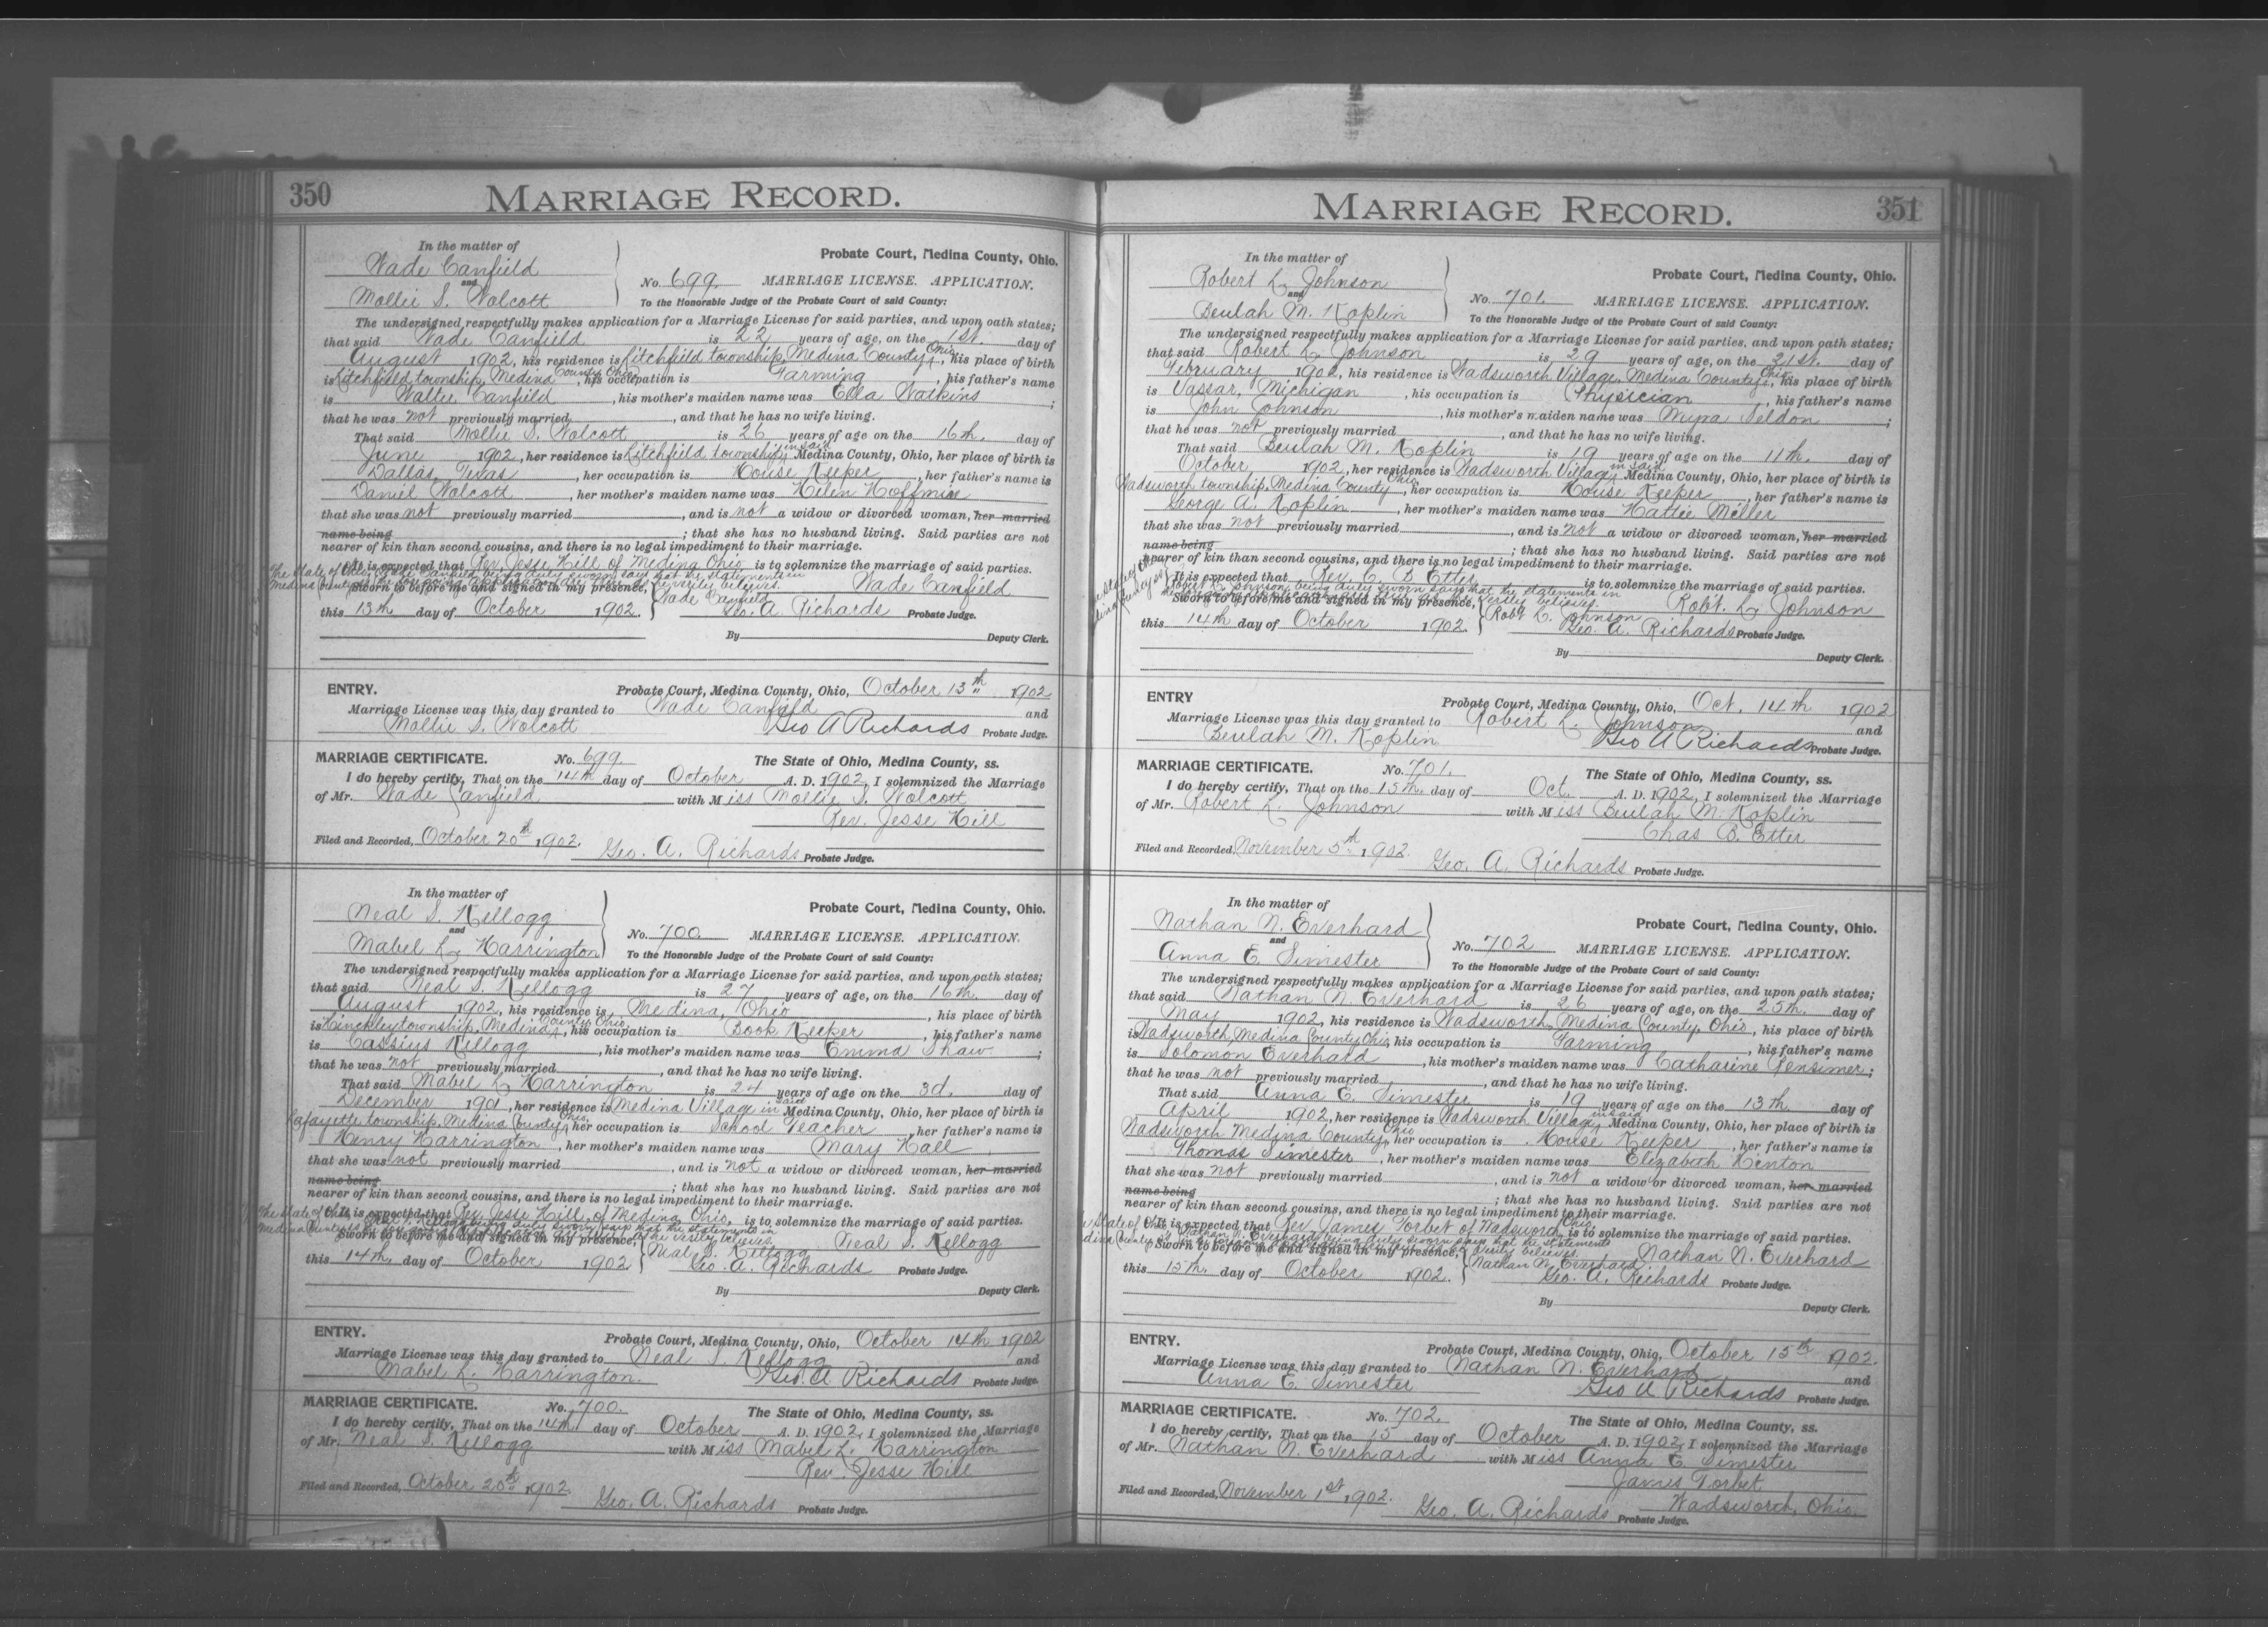 350
MARRIAGE RECORD.
In the matter of
Wade Canfield
and
Mollie S. Wolcott
Probate Court, Medina County, Ohio.
No. 699. MARRIAGE LICENSE. APPLICATION.
To the Honorable Judge of the Probate Court of said County:
The undersigned respectfully makes application for a Marriage License for said parties, and upon oath states;
that said Wade Canfield is 22 years of age, on the 1st. day of
August 1902, his residence is Litchfield township, Medina County, Ohio, his place of birth
is Litchfield township, Medina County Ohio, his occupation is Farming, his father's name
is Wallie Canfield, his mother's maiden name was Ella Watkins;
that he was not previously married, and that he has no wife living.
That said Mollie S. Wolcott is 26 years of age on the 16th. day of
June 1902, her residence is Litchfield township in said Medina County, Ohio, her place of birth is
Dallas, Texas, her occupation is House Keeper, her father's name is
Daniel Wolcott, her mother's maiden name was Helen Hoffmire
that she was not previously married, and is not a widow or divorced woman, her married
name being ; that she has no husband living. Said parties are not
nearer of kin than second cousins, and there is no legal impediment to their marriage.
It is expected that Rev. Jesse Hill of Medina Ohio is to solemnize the marriage of said parties.
The State of Ohio Wade Canfield being duly sworn says that the statements in
Medina County he verily believes.
Wade Canfield
Sworn to before me and signed in my presence, Wade Canfield
this 13th day of October 1902. Geo. A. Richards Probate Judge.
By Deputy Clerk.
ENTRY. Probate Court, Medina County, Ohio, October 13th 1902
Marriage License was this day granted to Wade Canfield and
Mollie S. Wolcott Geo A Richards Probate Judge.
MARRIAGE CERTIFICATE. No. 699. The State of Ohio, Medina County, ss.
I do hereby certify, That on the 14th day of October A. D. 1902, I solemnized the Marriage
of Mr. Wade Canfield with Miss Mollie S. Wolcott
Rev. Jesse Hill
Filed and Recorded, October 20th 1902. Geo. A. Richards Probate Judge.
In the matter of
Neal S. Kellogg
and
Mabel L. Harrington
Probate Court, Medina County, Ohio.
No. 700. MARRIAGE LICENSE. APPLICATION.
To the Honorable Judge of the Probate Court of said County:
The undersigned respectfully makes application for a Marriage License for said parties, and upon oath states;
that said Neal S. Kellogg is 27 years of age, on the 16th. day of
August 1902, his residence is Medina, Ohio, his place of birth
is Hinckley township, Medina County Ohio, his occupation is Book Keeper, his father's name
is Cassius Kellogg, his mother's maiden name was Emma Shaw;
that he was not previously married, and that he has no wife living.
That said Mabel L. Harrington is 24 years of age on the 3d. day of
December 1901, her residence is Medina Village in said Medina County, Ohio, her place of birth is
Lafayette township, Medina County, Ohio, her occupation is School Teacher, her father's name is
Henry Harrington, her mother's maiden name was Mary Hall
that she was not previously married, and is not a widow or divorced woman, her married
name being ; that she has no husband living. Said parties are not
nearer of kin than second cousins, and there is no legal impediment to their marriage.
It is expected that Rev. Jesse Hill, of Medina Ohio, is to solemnize the marriage of said parties.
The State of Ohio Neal S. Kellogg being duly sworn says that the statements in
Medina County he verily believes.
Neal S. Kellogg
Sworn to before me and signed in my presence, Neal S. Kellogg
this 14th. day of October 1902 Geo. A. Richards Probate Judge.
By Deputy Clerk.
ENTRY. Probate Court, Medina County, Ohio, October 14th 1902
Marriage License was this day granted to Neal S. Kellogg and
Mabel L. Harrington. Geo. A. Richards Probate Judge.
MARRIAGE CERTIFICATE. No. 700. The State of Ohio, Medina County, ss.
I do hereby certify, That on the 14th day of October A. D. 1902, I solemnized the Marriage
of Mr. Neal S. Kellogg with Miss Mabel L. Harrington
Rev. Jesse Hill
Filed and Recorded, October 20th 1902. Geo. A. Richards Probate Judge.
MARRIAGE RECORD. 351
In the matter of
Robert L. Johnson
and
Beulah M. Koplin
Probate Court, Medina County, Ohio.
No. 701. MARRIAGE LICENSE. APPLICATION.
To the Honorable Judge of the Probate Court of said County:
The undersigned respectfully makes application for a Marriage License for said parties, and upon oath states;
that said Robert L. Johnson is 29 years of age, on the 21st. day of
February 1902, his residence is Wadsworth Village, Medina County, Ohio, his place of birth
is Vassar, Michigan, his occupation is Physician, his father's name
is John Johnson, his mother's maiden name was Myra Seldon;
that he was not previously married, and that he has no wife living.
That said Beulah M. Koplin is 19 years of age on the 11th. day of
October 1902, her residence is Wadsworth Village in said Medina County, Ohio, her place of birth is
Wadsworth township, Medina County Ohio, her occupation is House Keeper, her father's name is
George A. Koplin, her mother's maiden name was Hattie Miller
that she was not previously married, and is not a widow or divorced woman, her married
name being ; that she has no husband living. Said parties are not
nearer of kin than second cousins, and there is no legal impediment to their marriage.
It is expected that Rev. C. B Etter is to solemnize the marriage of said parties.
Robert L. Johnson being duly sworn says that the statements in
he verily believes. Robt. L. Johnson
Sworn to before me and signed in my presence, Robt L. Johnson
this 14th day of October 1902. Geo. A. Richards Probate Judge.
By Deputy Clerk.
ENTRY Probate Court, Medina County, Ohio, Oct. 14th 1902
Marriage License was this day granted to Robert L. Johnson and
Beulah M. Koplin Geo A Richards Probate Judge.
MARRIAGE CERTIFICATE. No. 701. The State of Ohio, Medina County, ss.
I do hereby certify, That on the 15th. day of Oct. A. D. 1902, I solemnized the Marriage
of Mr. Robert L. Johnson with Miss Beulah M. Koplin
Chas B. Etter
Filed and Recorded, November 5th 1902. Geo. A. Richards Probate Judge.
In the matter of
Nathan N. Everhard
and
Anna E. Simester
Probate Court, Medina County, Ohio.
No. 702 MARRIAGE LICENSE. APPLICATION.
To the Honorable Judge of the Probate Court of said County:
The undersigned respectfully makes application for a Marriage License for said parties, and upon oath states;
that said Nathan N. Everhard is 26 years of age, on the 25th. day of
May 1902, his residence is Wadsworth, Medina County, Ohio, his place of birth
is Wadsworth, Medina County Ohio, his occupation is Farming, his father's name
is Solomon Everhard, his mother's maiden name was Catharine Gensimer;
that he was not previously married, and that he has no wife living.
That said Anna E. Simester is 19 years of age on the 13th day of
April 1902, her residence is Wadsworth Village in said Medina County, Ohio, her place of birth is
Wadsworth Medina County, Ohio, her occupation is House Keeper, her father's name is
Thomas Simester, her mother's maiden name was Elizabeth Hinton
that she was not previously married, and is not a widow or divorced woman, her married
name being ; that she has no husband living. Said parties are not
nearer of kin than second cousins, and there is no legal impediment to their marriage.
It is expected that Rev. James Torbet of Wadsworth Ohio, is to solemnize the marriage of said parties.
Nathan N. Everhard being duly sworn says that the statements
verily believes. Nathan N. Everhard
Sworn to before me and signed in my presence, Nathan N. Everhard
this 15th. day of October 1902. Geo. A. Richards Probate Judge.
By Deputy Clerk.
ENTRY. Probate Court, Medina County, Ohio, October 15th 1902.
Marriage License was this day granted to Nathan N. Everhard and
Anna E. Simester Geo A Richards Probate Judge.
MARRIAGE CERTIFICATE. No. 702. The State of Ohio, Medina County, ss.
I do hereby certify, That on the 15 day of October A. D. 1902, I solemnized the Marriage
of Mr. Nathan N. Everhard with Miss Anna E Simester
James Torbet
Wadsworth, Ohio.
Filed and Recorded, November 1st 1902. Geo. A. Richards Probate Judge.